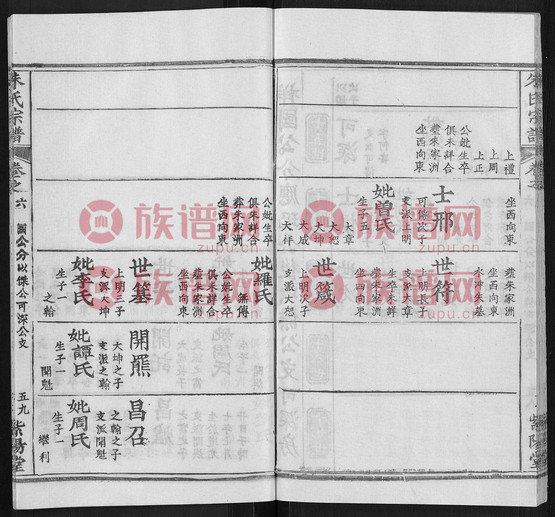 朱氏宗譜
卷之
上禮
上周
上正
公妣生卒
俱未詳合
塟朱家洲
坐西向東
坐西向東
士邢
可傑次子
支派上明
妣曾氏
生子五
大章
大坤
大起
大成
大祥
塟朱家洲
坐西向東
水沖失墓
世符
上明長子
支派大章
生卒未詳
塟朱家洲
坐西向東
世箴
上明次子
支派大起
紫陽堂
公妣生卒
俱未詳合
塟朱家洲
坐西向東
妣羅氏
無傳
公妣生卒
俱未詳合
塟朱家洲
坐西向東
世篡
上明三子
支派大坤
妣李氏
生子一
之翰
開羆
大坤之子
支派之翰
妣譚氏
生子一
開魁
昌召
之翰之子
支派開魁
妣周氏
生子一
耀利
朱氏宗譜
卷之六
國公分以傑公可深公支
五九
紫陽堂
族谱网
zupu.cn